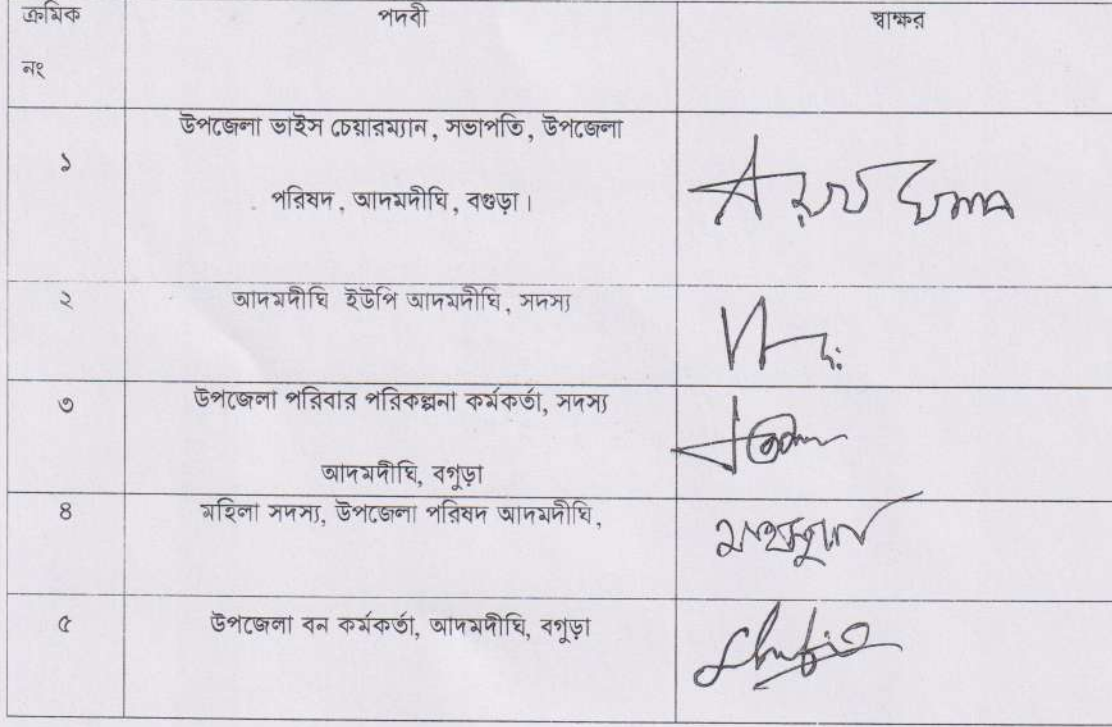 ক্রমিক
নং
পদবী
স্বাক্ষর
১
উপজেলা ভাইস চেয়ারম্যান, সভাপতি, উপজেলা
পরিষদ, আদমদীঘি, বগুড়া।
২
আদমদীঘি ইউপি আদমদীঘি, সদস্য
৩
উপজেলা পরিবার পরিকল্পনা কর্মকর্তা, সদস্য
আদমদীঘি, বগুড়া
৪
মহিলা সদস্য, উপজেলা পরিষদ আদমদীঘি,
৫
উপজেলা বন কর্মকর্তা, আদমদীঘি, বগুড়া